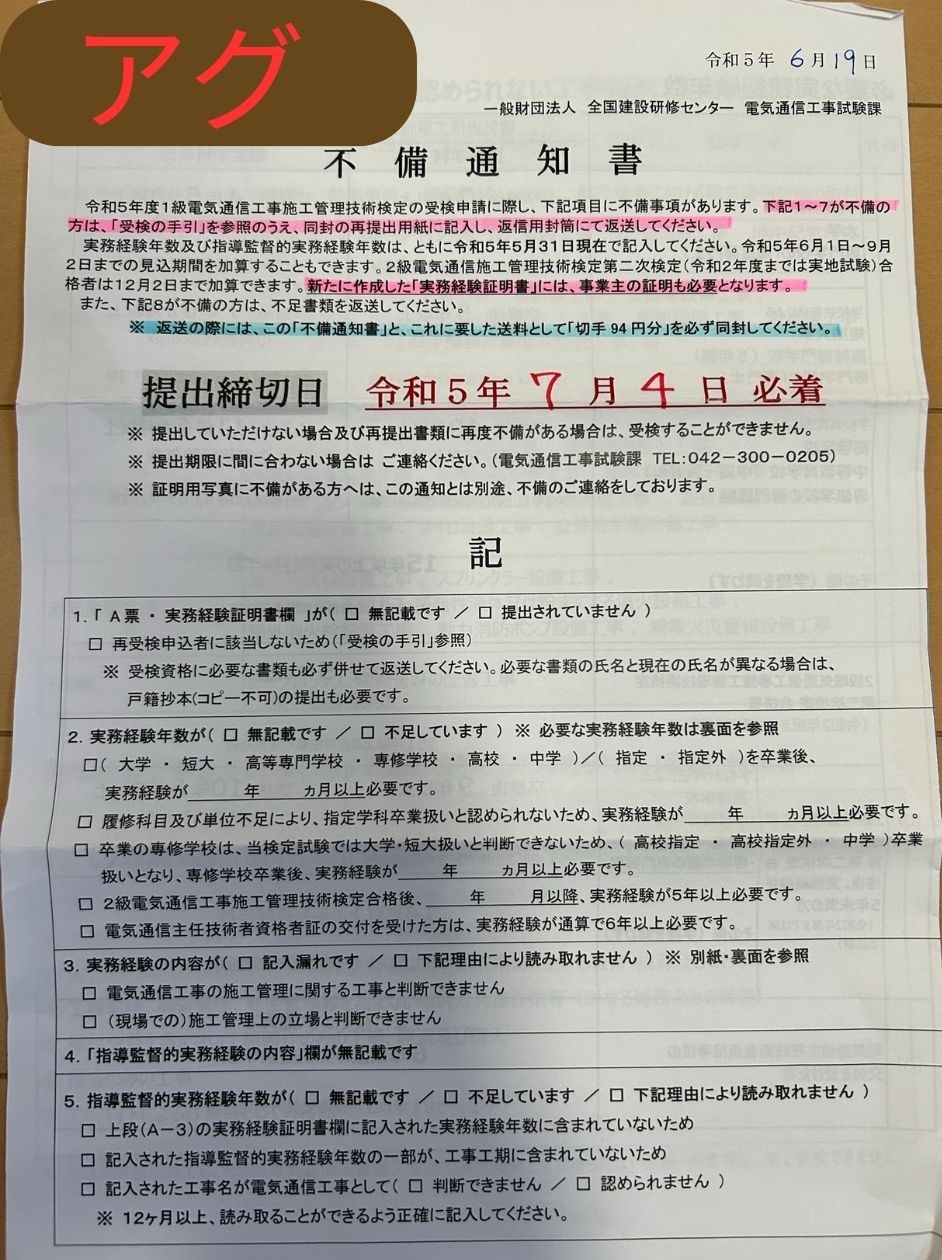 アグ
令和5年 6月19日
一般財団法人 全国建設研修センター 電気通信工事試験課
不備通知書
令和5年度1級電気通信工事施工管理技術検定の受検申請に際し、下記項目に不備事項があります。下記1~7が不備の
方は、「受検の手引」を参照のうえ、同封の再提出用紙に記入し、返信用封筒にて返送してください。
実務経験年数及び指導監督的実務経験年数は、ともに令和5年5月31日現在で記入してください。令和5年6月1日~9月
2日までの見込期間を加算することもできます。2級電気通信施工管理技術検定第二次検定(令和2年度までは実地試験)合
格者は12月2日まで加算できます。新たに作成した「実務経験証明書」には、事業主の証明も必要となります。
また、下記8が不備の方は、不足書類を返送してください。
※ 返送の際には、この「不備通知書」と、これに要した送料として「切手94円分」を必ず同封してください。
提出締切日 令和5年 7月 4日 必着
※ 提出していただけない場合及び再提出書類に再度不備がある場合は、受検することができません。
※ 提出期限に間に合わない場合は ご連絡ください。(電気通信工事試験課 TEL:042-300-0205)
※ 証明用写真に不備がある方へは、この通知とは別途、不備のご連絡をしております。
記
1.「 A票・実務経験証明書欄 」が( □ 無記載です / □ 提出されていません )
□ 再受検申込者に該当しないため(「受検の手引」参照)
※ 受検資格に必要な書類も必ず併せて返送してください。必要な書類の氏名と現在の氏名が異なる場合は、
戸籍抄本(コピー不可)の提出も必要です。
2. 実務経験年数が( □ 無記載です / □ 不足しています ) ※ 必要な実務経験年数は裏面を参照
□( 大学 ・ 短大 ・ 高等専門学校 ・ 専修学校 ・ 高校 ・ 中学 )/( 指定 ・ 指定外 )を卒業後、
実務経験が　　　年　　　ヵ月以上必要です。
□ 履修科目及び単位不足により、指定学科卒業扱いと認められないため、実務経験が　　　年　　　ヵ月以上必要です。
□ 卒業の専修学校は、当検定試験では大学・短大扱いと判断できないため、( 高校指定 ・ 高校指定外 ・ 中学 )卒業
扱いとなり、専修学校卒業後、実務経験が　　　年　　　ヵ月以上必要です。
□ 2級電気通信工事施工管理技術検定合格後、　　　年　　　月以降、実務経験が5年以上必要です。
□ 電気通信主任技術者資格者証の交付を受けた方は、実務経験が通算で6年以上必要です。
3. 実務経験の内容が( □ 記入漏れです / □ 下記理由により読み取れません ) ※ 別紙・裏面を参照
□ 電気通信工事の施工管理に関する工事と判断できません
□ (現場での)施工管理上の立場と判断できません
4.「指導監督的実務経験の内容」欄が無記載です
5. 指導監督的実務経験年数が( □ 無記載です / □ 不足しています / □ 下記理由により読み取れません )
□ 上段(A-3)の実務経験証明書欄に記入された実務経験年数に含まれていないため
□ 記入された指導監督的実務経験年数の一部が、工事工期に含まれていないため
□ 記入された工事名が電気通信工事として( □ 判断できません / □ 認められません )
※ 12ヶ月以上、読み取ることができるよう正確に記入してください。